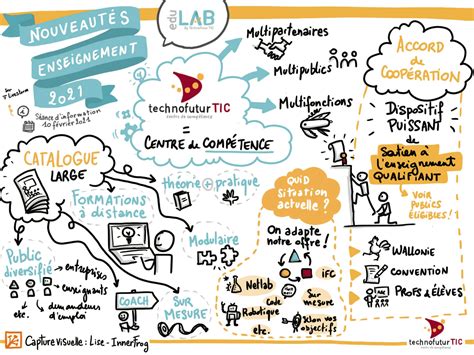 NOUVEAUTÉS
ENSEIGNEMENT
2021
Séance d'information
10 février 2021
edu LAB
by Technofutur TIC
technofutur TIC
centre de compétence
=
CENTRE de COMPÉTENCE
Multipartenaires
Multipublics
Multifonctions
ACCORD
de
COOPÉRATION
DISPOSITIF
PUISSANT
de
Soutien à
l'enseignement
QUALIFIANT
VOIR
PUBLICS
ÉLIGIBLES !
WALLONIE
CONVENTION
PROFS & ÉLÈVES
CATALOGUE
LARGE
théorie + pratique
FORMATIONS
à distance
Modulaire
Public
diversifié
entreprises
enseignants
demandeurs
d'emploi
etc.
COACH
SUR
MESURE
QUID
Situation
actuelle ?
On adapte
notre offre !
Netlab
IFC
Code
Robotique
etc.
Sur
mesure
Selon vos
objectifs
Capture Visuelle : Lise - Innerfrog
technofutur TIC